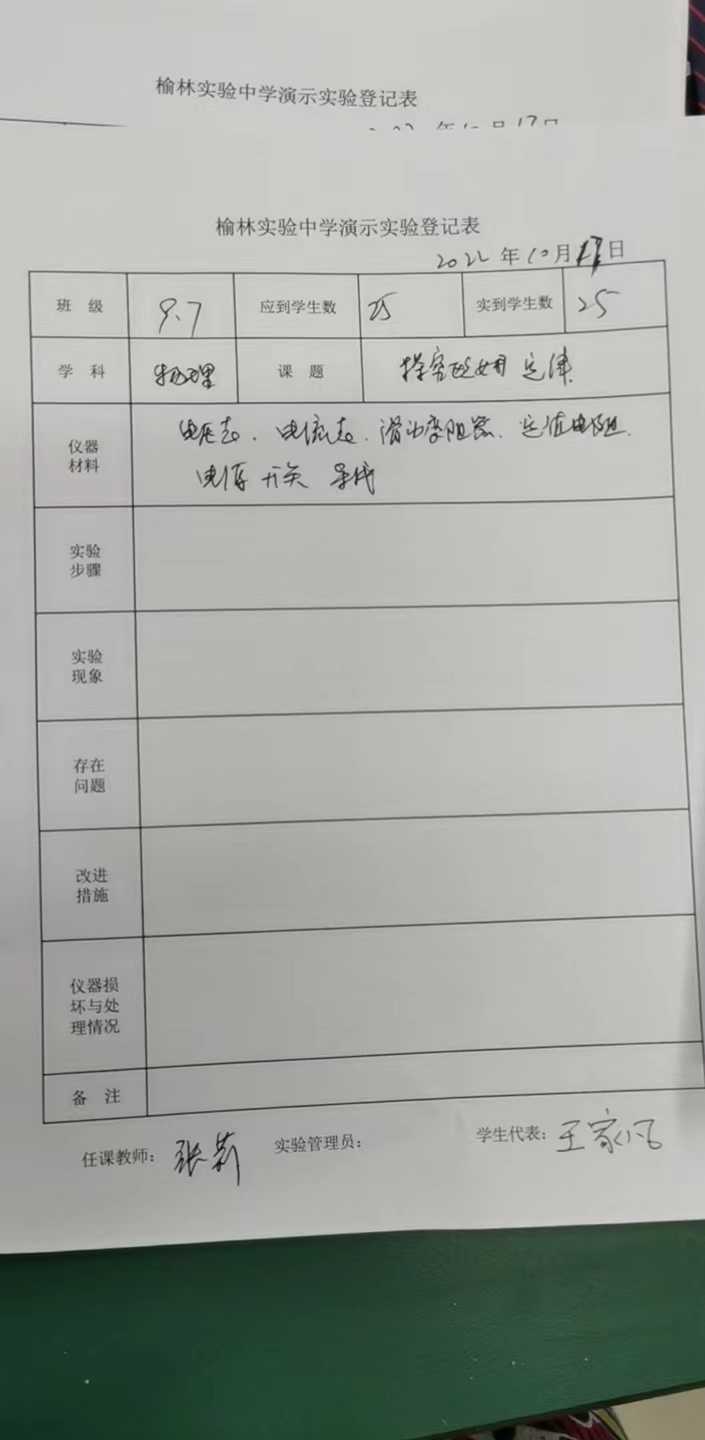 榆林实验中学演示实验登记表
2022年10月17日
榆林实验中学演示实验登记表
2022年10月日
班 级 9.7 应到学生数 25 实到学生数 25
学 科 物理 课 题 探究欧姆定律
仪器
材料
电压表、电流表、滑动变阻器、定值电阻、
电源 开关 导线
实验
步骤
实验
现象
存在
问题
改进
措施
仪器损
坏与处
理情况
备 注
任课教师:张莉 实验管理员: 学生代表:王家